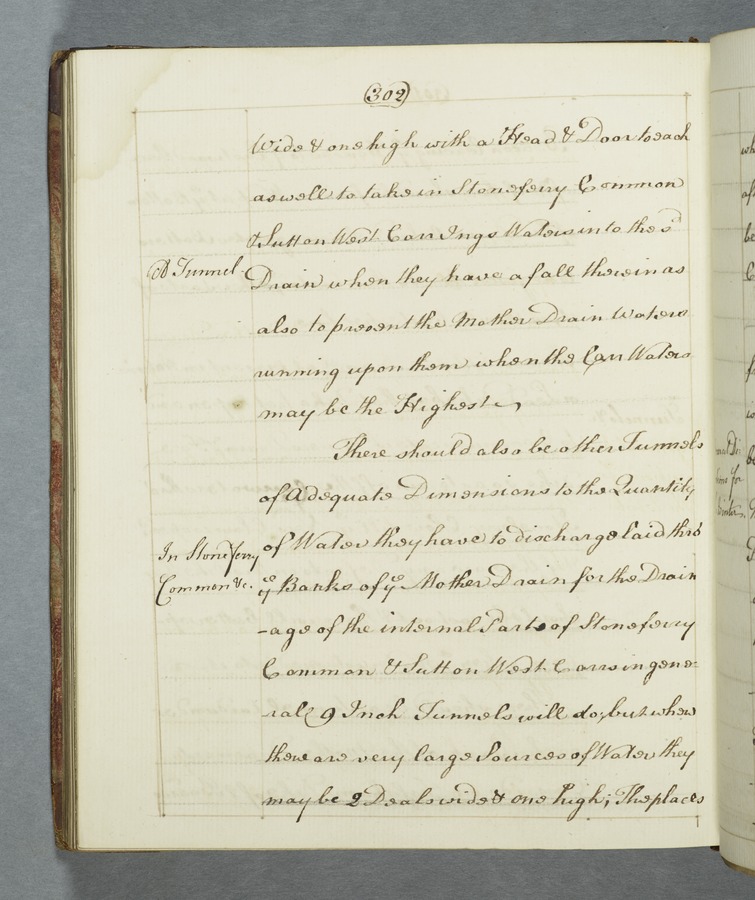 302
Wide & one high with a Head & Door to each
as well to take in Stoneferry Common
& Sutton West Carr Ings Waters into the sd
A Tunnel
Drain when they have a fall therein as
also to prevent the Mother Drain Waters
running upon them when the Carr Waters
may be the Highest,
There should also be other Tunnels
of Adequate Dimensions to the Quantity
In Stoneferry
Common &c.
of Water they have to discharge laid thro'
ye Banks of ye Mother Drain for the Drain
-age of the internal Parts of Stoneferry
Common & Sutton West Carrs in gene-
ral 9 Inch Tunnels will do, but when
there are very large Sources of Water they
may be 2 Deals wide & one high; The places